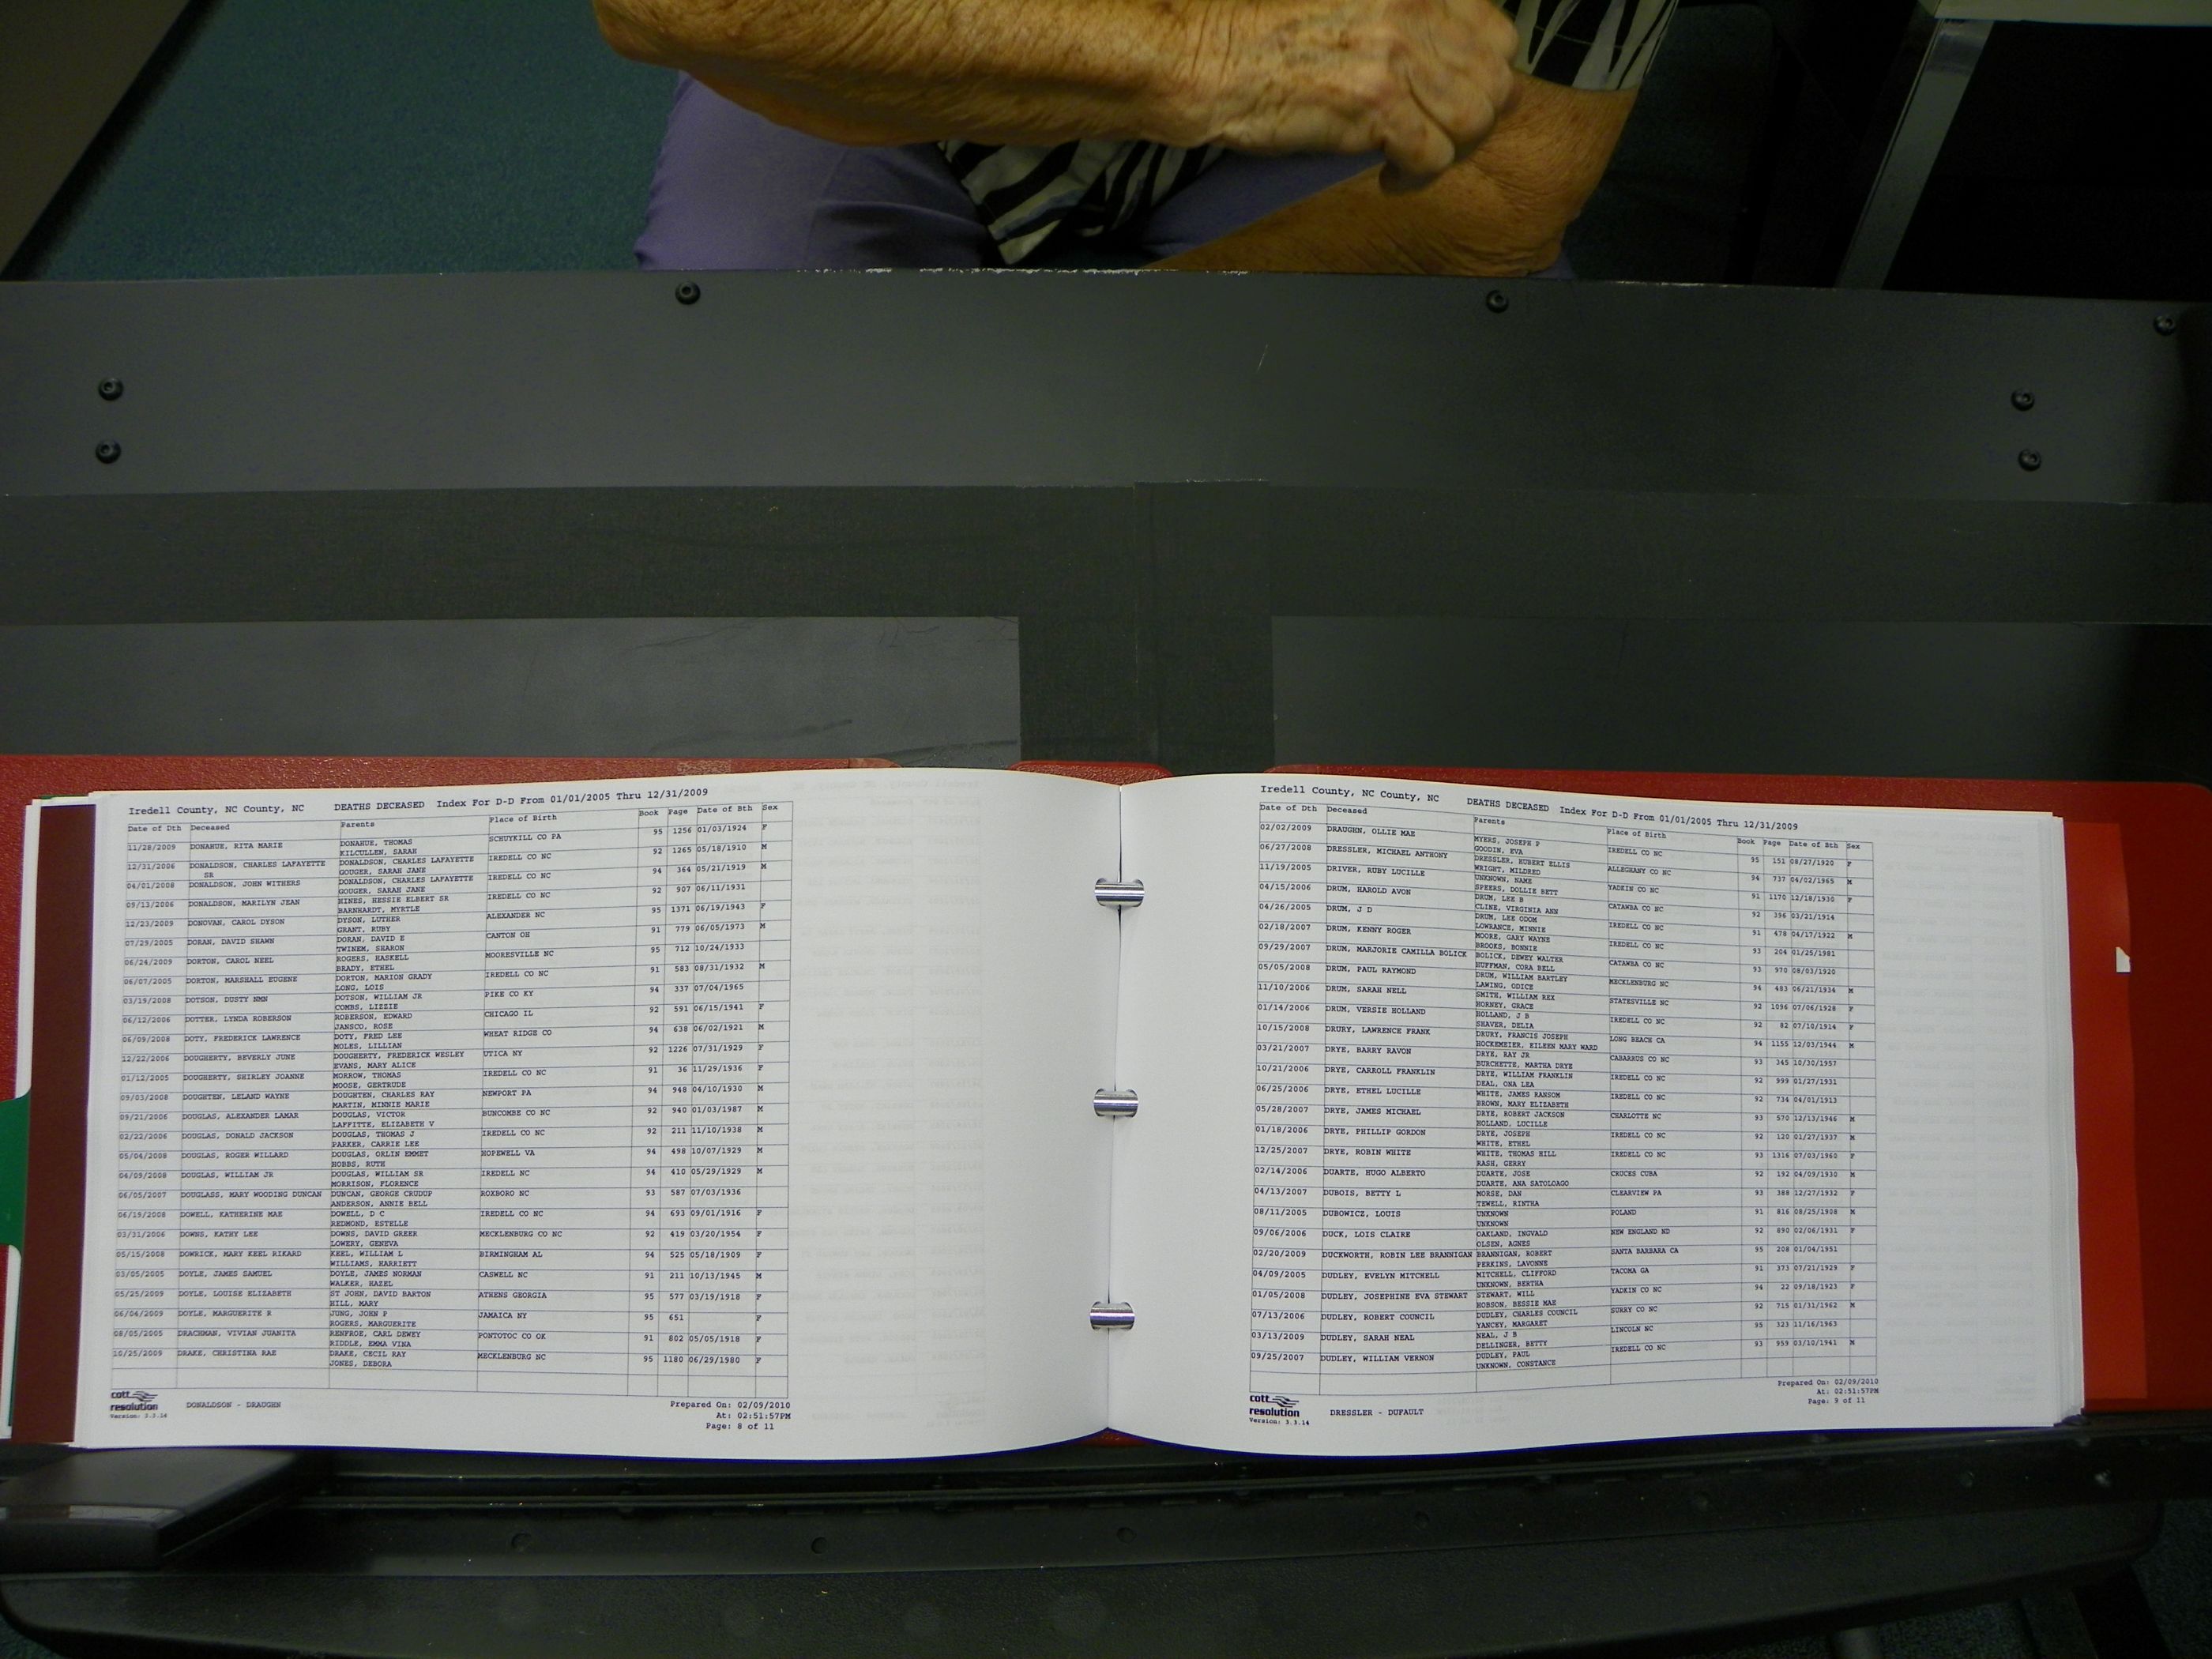 Iredell County, NC County, NC DEATHS DECEASED Index For D-D From 01/01/2005 Thru 12/31/2009
Date of Dth Deceased Parents Place of Birth Book Page Date of Bth Sex
11/28/2009 DONAHUE, RITA MARIE DONAHUE, THOMAS SCHUYKILL CO PA 95 1256 01/03/1924 F
KILCULLEN, SARAH
12/31/2006 DONALDSON, CHARLES LAFAYETTE DONALDSON, CHARLES LAFAYETTE IREDELL CO NC 92 1265 05/18/1910 M
SR GOUGER, SARAH JANE
04/01/2008 DONALDSON, JOHN WITHERS DONALDSON, CHARLES LAFAYETTE IREDELL CO NC 94 364 05/21/1919 M
GOUGER, SARAH JANE
09/13/2006 DONALDSON, MARILYN JEAN HINES, HESSIE ELBERT SR IREDELL CO NC 92 907 06/11/1931
BARNHARDT, MYRTLE
12/23/2009 DONOVAN, CAROL DYSON DYSON, LUTHER ALEXANDER NC 95 1371 06/19/1943 F
GRANT, RUBY
07/29/2005 DORAN, DAVID SHAWN DORAN, DAVID E CANTON OH 91 779 06/05/1973 M
TWINEM, SHARON
06/24/2009 DORTON, CAROL NEEL ROGERS, HASKELL MOORESVILLE NC 95 712 10/24/1933
BRADY, ETHEL
06/07/2005 DORTON, MARSHALL EUGENE DORTON, MARION GRADY IREDELL CO NC 91 583 08/31/1932 M
LONG, LOIS
03/19/2008 DOTSON, DUSTY NMN DOTSON, WILLIAM JR PIKE CO KY 94 337 07/04/1965
COMBS, LIZZIE
06/12/2006 DOTTER, LYNDA ROBERSON ROBERSON, EDWARD CHICAGO IL 92 591 06/15/1941 F
JANSCO, ROSE
06/09/2008 DOTY, FREDERICK LAWRENCE DOTY, FRED LEE WHEAT RIDGE CO 94 638 06/02/1921 M
MOLES, LILLIAN
12/22/2006 DOUGHERTY, BEVERLY JUNE DOUGHERTY, FREDERICK WESLEY UTICA NY 92 1226 07/31/1929 F
EVANS, MARY ALICE
01/12/2005 DOUGHERTY, SHIRLEY JOANNE MORROW, THOMAS IREDELL CO NC 91 36 11/29/1936 F
MOOSE, GERTRUDE
09/03/2008 DOUGHTEN, LELAND WAYNE DOUGHTEN, CHARLES RAY NEWPORT PA 94 948 04/10/1930 M
MARTIN, MINNIE MARIE
09/21/2006 DOUGLAS, ALEXANDER LAMAR DOUGLAS, VICTOR BUNCOMBE CO NC 92 940 01/03/1987 M
LAFFITTE, ELIZABETH V
02/22/2006 DOUGLAS, DONALD JACKSON DOUGLAS, THOMAS J IREDELL CO NC 92 211 11/10/1938 M
PARKER, CARRIE LEE
05/04/2008 DOUGLAS, ROGER WILLARD DOUGLAS, ORLIN EMMET HOPEWELL VA 94 498 10/07/1929 M
HOBBS, RUTH
04/09/2008 DOUGLAS, WILLIAM JR DOUGLAS, WILLIAM SR IREDELL NC 94 410 05/29/1929 M
MORRISON, FLORENCE
06/05/2007 DOUGLASS, MARY WOODING DUNCAN DUNCAN, GEORGE CRUDUP ROXBORO NC 93 587 07/03/1936
ANDERSON, ANNIE BELL
06/19/2008 DOWELL, KATHERINE MAE DOWELL, D C IREDELL CO NC 94 693 09/01/1916 F
REDMOND, ESTELLE
03/31/2006 DOWNS, KATHY LEE DOWNS, DAVID GREER MECKLENBURG CO NC 92 419 03/20/1954 F
LOWERY, GENEVA
05/15/2008 DOWRICK, MARY KEEL RIKARD KEEL, WILLIAM L BIRMINGHAM AL 94 525 05/18/1909 F
WILLIAMS, HARRIETT
03/05/2005 DOYLE, JAMES SAMUEL DOYLE, JAMES NORMAN CASWELL NC 91 211 10/13/1945 M
WALKER, HAZEL
05/25/2009 DOYLE, LOUISE ELIZABETH ST JOHN, DAVID BARTON ATHENS GEORGIA 95 577 03/19/1918 F
HILL, MARY
06/04/2009 DOYLE, MARGUERITE R JUNG, JOHN P JAMAICA NY 95 651 F
ROGERS, MARGUERITE
08/05/2005 DRACHMAN, VIVIAN JUANITA RENFROE, CARL DEWEY PONTOTOC CO OK 91 802 05/05/1918 F
RIDDLE, EMMA VINA
10/25/2009 DRAKE, CHRISTINA RAE DRAKE, CECIL RAY MECKLENBURG NC 95 1180 06/29/1980 F
JONES, DEBORA
cott
resolution
Version: 3.3.14
DONALDSON - DRAUGHN
Prepared On: 02/09/2010
At: 02:51:57PM
Page: 8 of 11
Iredell County, NC County, NC DEATHS DECEASED Index For D-D From 01/01/2005 Thru 12/31/2009
Date of Dth Deceased Parents Place of Birth Book Page Date of Bth Sex
02/02/2009 DRAUGHN, OLLIE MAE MYERS, JOSEPH P IREDELL CO NC 95 151 08/27/1920 F
GOODIN, EVA
06/27/2008 DRESSLER, MICHAEL ANTHONY DRESSLER, HUBERT ELLIS ALLEGHANY CO NC 94 737 04/02/1965 M
WRIGHT, MILDRED
11/19/2005 DRIVER, RUBY LUCILLE UNKNOWN, NAME YADKIN CO NC 91 1170 12/18/1930 F
SPEERS, DOLLIE BETT
04/15/2006 DRUM, HAROLD AVON DRUM, LEE B CATAWBA CO NC 92 396 03/21/1914
CLINE, VIRGINIA ANN
04/26/2005 DRUM, J D DRUM, LEE ODOM IREDELL CO NC 91 478 04/17/1922 M
LOWRANCE, MINNIE
02/18/2007 DRUM, KENNY ROGER MOORE, GARY WAYNE IREDELL CO NC 93 204 01/25/1981
BROOKS, BONNIE
09/29/2007 DRUM, MARJORIE CAMILLA BOLICK BOLICK, DEWEY WALTER CATAWBA CO NC 93 970 08/03/1920
HUFFMAN, CORA BELL
05/05/2008 DRUM, PAUL RAYMOND DRUM, WILLIAM BARTLEY MECKLENBURG NC 94 483 06/21/1934 M
LAWING, ODICE
11/10/2006 DRUM, SARAH NELL SMITH, WILLIAM REX STATESVILLE NC 92 1096 07/06/1928 F
HORNEY, GRACE
01/14/2006 DRUM, VERSIE HOLLAND HOLLAND, J B IREDELL CO NC 92 82 07/10/1914 F
SHAVER, DELIA
10/15/2008 DRURY, LAWRENCE FRANK DRURY, FRANCIS JOSEPH LONG BEACH CA 94 1155 12/03/1944 M
HOCKEMEIER, EILEEN MARY WARD
03/21/2007 DRYE, BARRY RAVON DRYE, RAY JR CABARRUS CO NC 93 345 10/30/1957
BURCHETTE, MARTHA DRYE
10/21/2006 DRYE, CARROLL FRANKLIN DRYE, WILLIAM FRANKLIN IREDELL CO NC 92 999 01/27/1931
DEAL, ONA LEA
06/25/2006 DRYE, ETHEL LUCILLE WHITE, JAMES RANSOM IREDELL CO NC 92 734 04/01/1913
BROWN, MARY ELIZABETH
05/28/2007 DRYE, JAMES MICHAEL DRYE, ROBERT JACKSON CHARLOTTE NC 93 570 12/13/1946 M
HOLLAND, LUCILLE
01/18/2006 DRYE, PHILLIP GORDON DRYE, JOSEPH IREDELL CO NC 92 120 01/27/1937 M
WHITE, ETHEL
12/25/2007 DRYE, ROBIN WHITE WHITE, THOMAS HILL IREDELL CO NC 93 1316 07/03/1960 F
RASH, GERRY
02/14/2006 DUARTE, HUGO ALBERTO DUARTE, JOSE CRUCES CUBA 92 192 04/09/1930 M
DUARTE, ANA SATOLOAGO
04/13/2007 DUBOIS, BETTY L MORSE, DAN CLEARVIEW PA 93 388 12/27/1932 F
TEWELL, RINTHA
08/11/2005 DUBOWICZ, LOUIS UNKNOWN POLAND 91 816 08/25/1908 M
UNKNOWN
09/06/2006 DUCK, LOIS CLAIRE OAKLAND, INGVALD NEW ENGLAND ND 92 890 02/06/1931 F
OLSEN, AGNES
02/20/2009 DUCKWORTH, ROBIN LEE BRANNIGAN BRANNIGAN, ROBERT SANTA BARBARA CA 95 208 01/04/1951
PERKINS, LAVONNE
04/09/2005 DUDLEY, EVELYN MITCHELL MITCHELL, CLIFFORD TACOMA GA 91 373 07/21/1929 F
UNKNOWN, BERTHA
01/05/2008 DUDLEY, JOSEPHINE EVA STEWART STEWART, WILL YADKIN CO NC 94 22 09/18/1923 F
HOBSON, BESSIE MAE
07/13/2006 DUDLEY, ROBERT COUNCIL DUDLEY, CHARLES COUNCIL SURRY CO NC 92 715 01/31/1962 M
YANCEY, MARGARET
03/13/2009 DUDLEY, SARAH NEAL NEAL, J B LINCOLN NC 95 323 11/16/1963
DELLINGER, BETTY
09/25/2007 DUDLEY, WILLIAM VERNON DUDLEY, PAUL IREDELL CO NC 93 959 03/10/1941 M
UNKNOWN, CONSTANCE
cott
resolution
Version: 3.3.14
DRESSLER - DUFAULT
Prepared On: 02/09/2010
At: 02:51:57PM
Page: 9 of 11